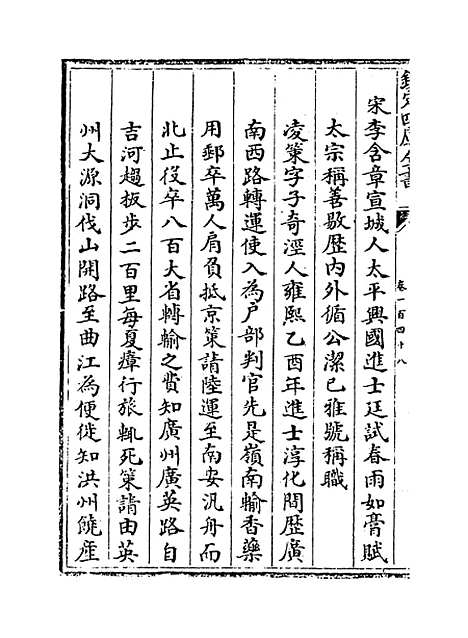 欽定四庫全書
卷一百四十八
宋李含章宣城人太平興國進士廷試春雨如膏賦
太宗稱善敭歴内外循公潔已雅號稱職
凌策字子奇涇人雍熙乙酉年進士淳化間歴廣
南西路轉運使入為户部判官先是嶺南輸香藥
用郵卒萬人肩負抵京策請陸運至南安汎舟而
北止役卒八百大省轉輸之費知廣州廣英路自
吉河趨板步二百里每夏瘴行旅輒死策請由英
州大源洞伐山開路至曲江為便徙知洪州饒産